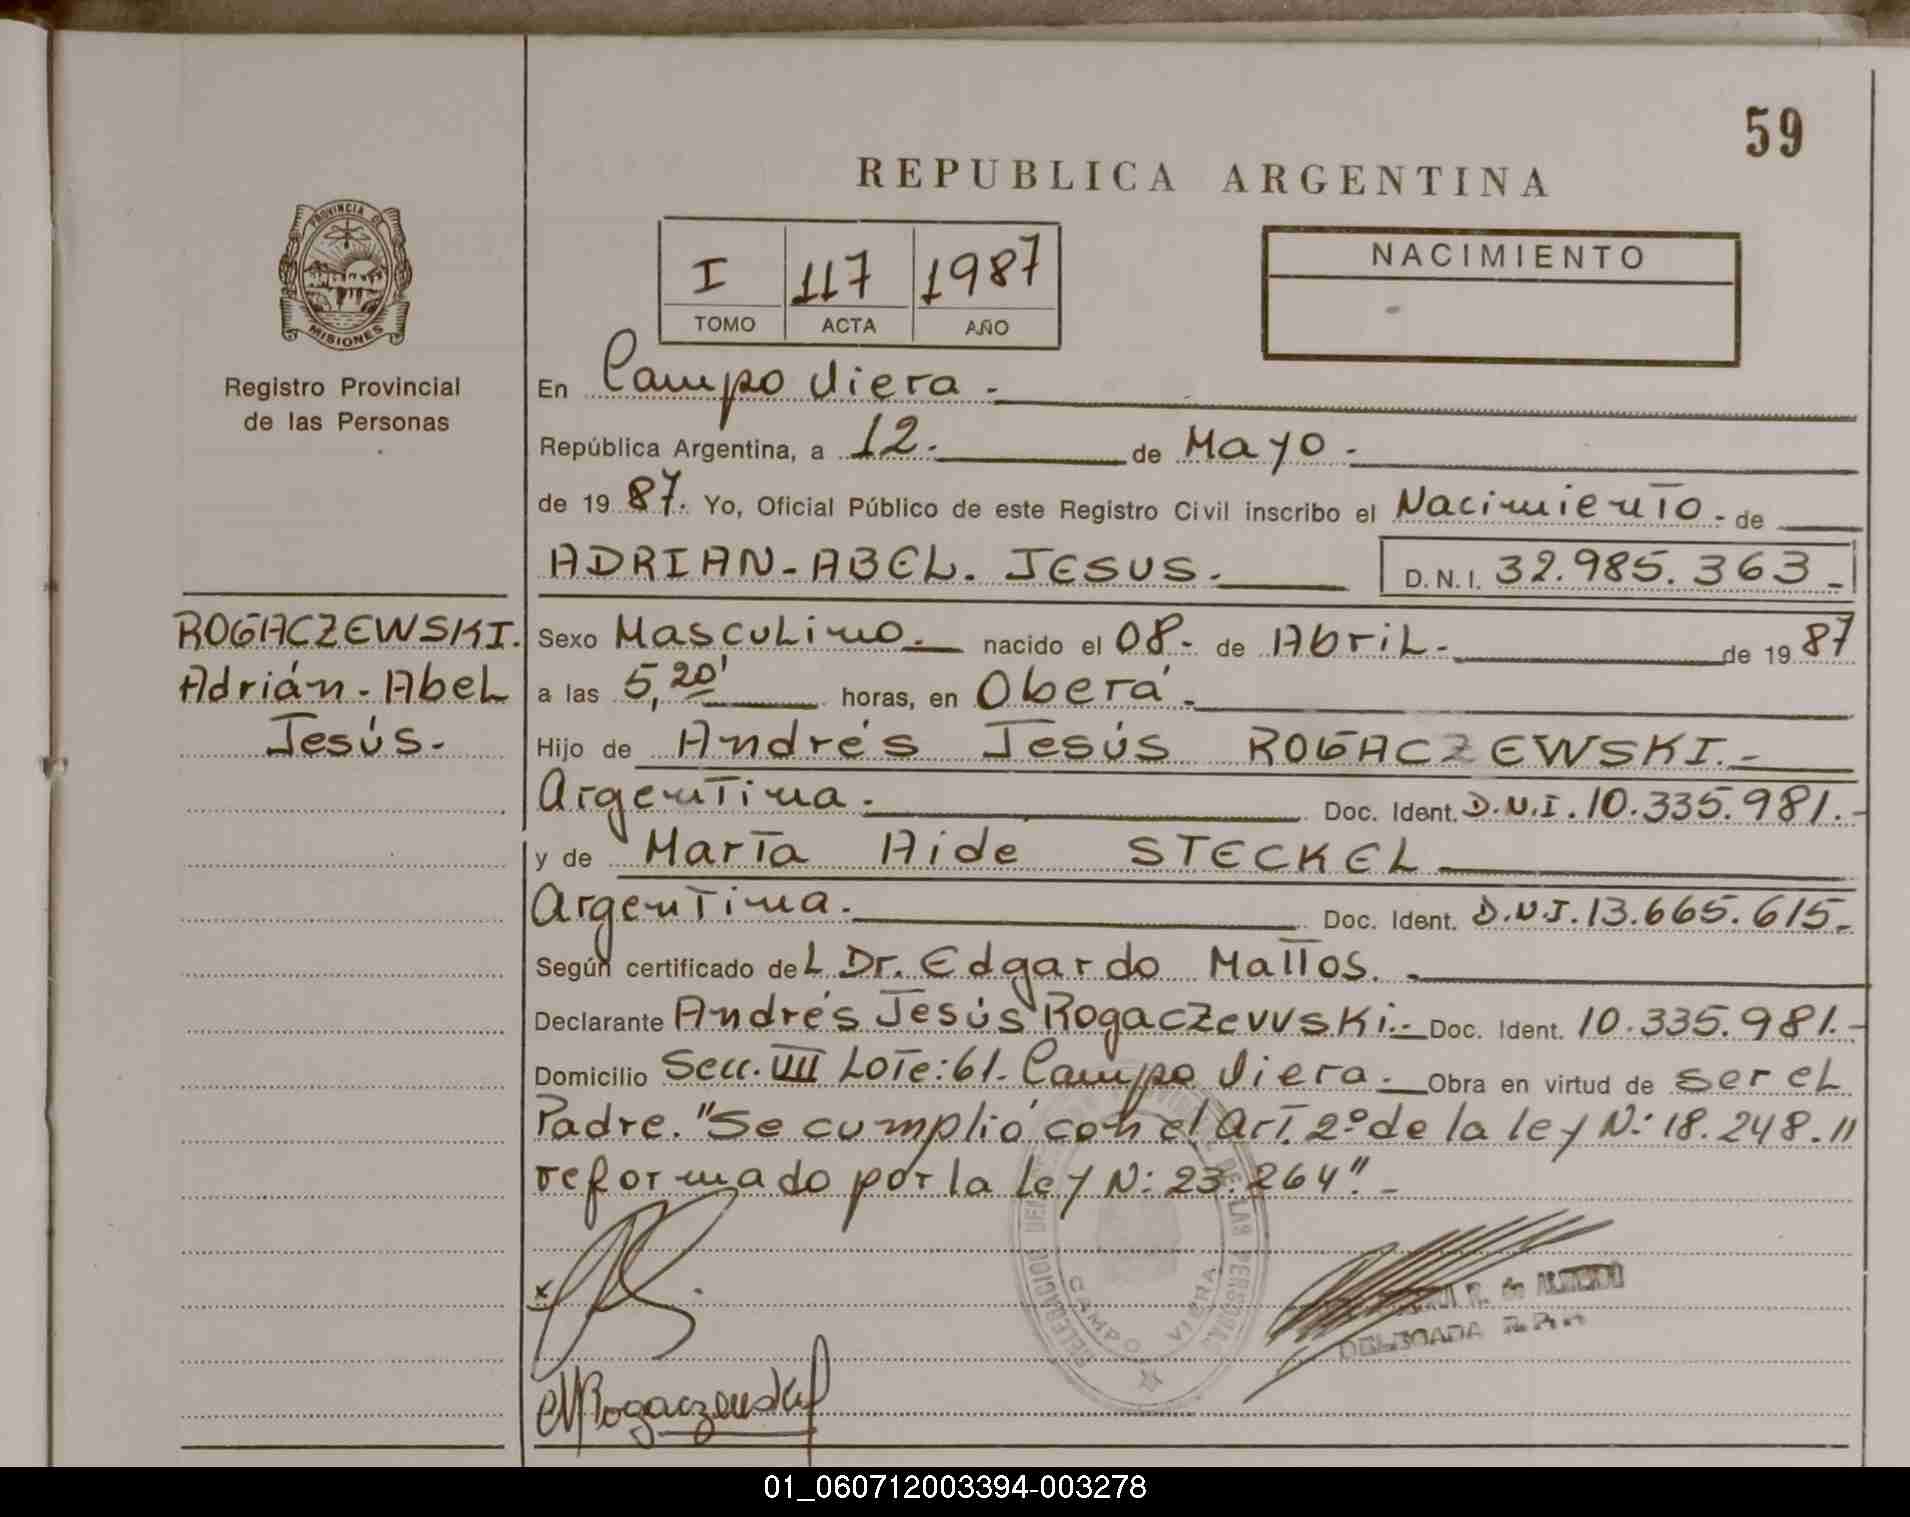 59
REPUBLICA ARGENTINA
PROVINCIA DE
MISIONES
Registro Provincial
de las Personas
I 117 1987
TOMO ACTA AÑO
NACIMIENTO
En Campo Viera.-
República Argentina, a 12. de Mayo.-
de 1987. Yo, Oficial Público de este Registro Civil inscribo el Nacimiento.- de
ADRIAN-ABEL. JESUS.- D.N.I. 32.985.363_
ROGACZEWSKI.
Adrián-Abel
Jesús.-
Sexo Masculino.- nacido el 08.- de Abril.- de 1987
a las 5,20' horas, en Oberá.-
Hijo de Andrés Jesús ROGACZEWSKI.-
Argentina. Doc. Ident. D.N.I. 10.335.981.-
y de Marta Aide STECKEL
Argentina. Doc. Ident. D.N.I. 13.665.615.-
Según certificado del Dr. Edgardo Mattos.
Declarante Andrés Jesús Rogaczewski.- Doc. Ident. 10.335.981.-
Domicilio Secc. VIII Lote: 61- Campo Viera.- Obra en virtud de ser el
Padre. "Se cumplió con el Art. 2º de la ley N: 18.248.11
reformado por la ley N: 23.264".-
x
DE LAS PERSONAS
CAMPO VIERA
R. de
DELEGADA
Rogaczewski
01_060712003394-003278